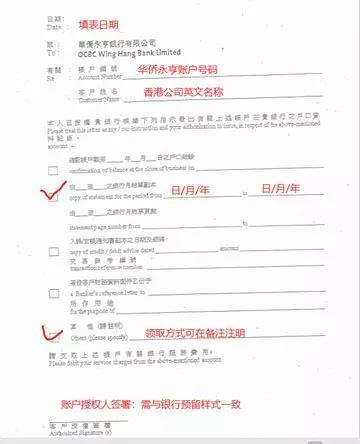 日期:
Date : 填表日期
致: 華僑永亨銀行有限公司
To : OCBC Wing Hang Bank Limited
有關 帳戶編號
Re Account Number 华侨永亨账户号码
客戶姓名
Customer Name 香港公司英文名称
本人茲授權貴銀行根據下列指示發出有關上述帳戶在貴銀行之戶口資料記錄。
Please treat this letter as my / our instruction and your authorization to issue, in respect of the above-mentioned account :-
年 月 日之戶口結餘
confirmation of balance at the close of business on
由 至 之銀行月結單副本
copy of statement for the period from 日/月/年 to 日/月/年
由 至
statement page number from to
入賬/支賬通知書副本之日期及銀碼
copy of credit / debit advice dated amount
交易參考編號
transaction reference number
a Banker's reference letter to
所作用途
for the purpose of
其他 (請註明)
Others (please specify) 领取方式可在备注注明
請支取上述帳戶有關銀行服務費用:
Please debit your service charges from the above-mentioned account.
账户授权人签署:需与银行预留样式一致
客戶授權簽署
Authorized Signature (s)